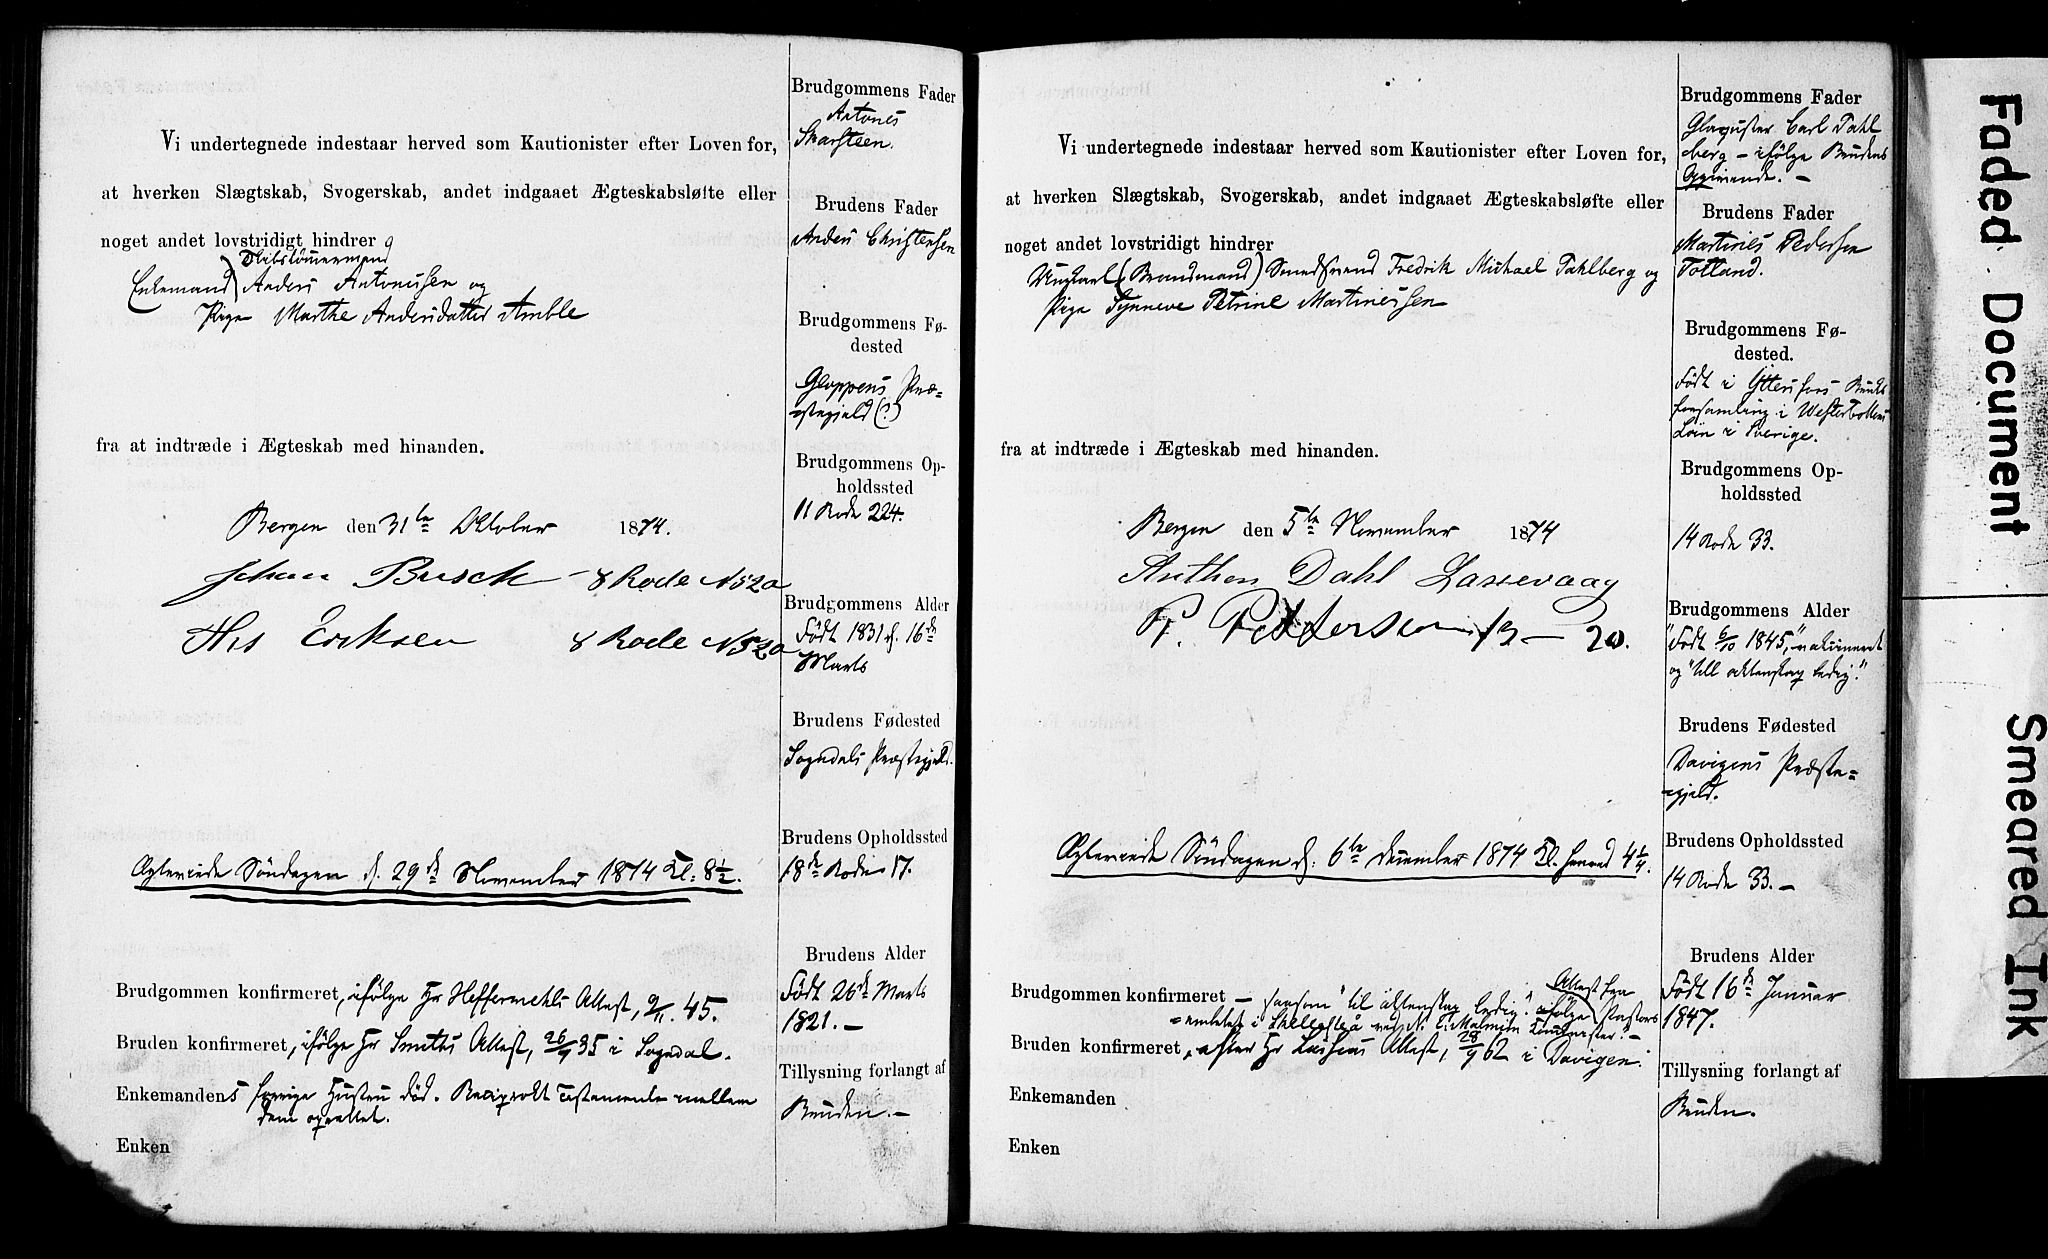 Vi undertegnede indestaar herved som Kautionister efter Loven for,
at hverken Slægtskab, Svogerskab, andet indgaaet Ægteskabsløfte eller
noget andet lovstridigt hindrer
Skibstömmermand
Enkemand Anders Antonussen og
Pige Marthe Andersdatter Amble
fra at indtræde i Ægteskab med hinanden.
Bergen den 31te Oktober 1874.
Johan Busch - 8 Rode N 52a
Eriksen 8 Rode N 52a
Ægteviede Söndagen d. 29de November 1874 Kl: 8½.
Brudgommen konfirmeret, ifölge Hr Heffermehls Attest, 9/11. 45.
Bruden konfirmeret, ifölge Hr Smiths Attest, 26/9 35 i Sogndal.
Enkemandens forrige Hustru död. Reciprokt Testamente mellem
dem oprettet.
Enken
Brudgommens Fader
Antones
Skarsteen.
Brudens Fader
Anders Christensen
Brudgommens Fø-
dested
Gloppens Præ-
stegjeld (?)
Brudgommens Op-
holdssted
11 Rode 224.
Brudgommens Alder
Född 1831 d. 16de
Marts
Brudens Fødested
Sogndals Præstegjeld.
Brudens Opholdssted
18de Rode 17.
Brudens Alder
Född 26de Marts
1821. -
Tillysning forlangt af
Bruden. -
Vi undertegnede indestaar herved som Kautionister efter Loven for,
at hverken Slægtskab, Svogerskab, andet indgaaet Ægteskabsløfte eller
noget andet lovstridigt hindrer
Ungkarl (Brandmand) Smedsvend Fredrik Michael Tahlberg og
Pige Synneve Petrine Martinessen
fra at indtræde i Ægteskab med hinanden.
Bergen den 5te November 1874
Anthon Dahl Laxevaag
P. Pettersen 19 - 20.
Ægteviede Söndagen d: 6te December 1874 Kl. 4¼.
Brudgommen konfirmeret - saasom "til äktenskap ledig". ifölge Attest fra Pastors
=embetet i Skellefteå
Bruden konfirmeret, efter Hr Attest, 28/9 62 i Davigen.
Enkemanden
Enken
Brudgommens Fader
Glaspuster Carl Tahl
berg - ifölge Brudens
Opgivende. -
Brudens Fader
Martines Pedersen
Totland.
Brudgommens Fø-
dested.
Född i Ytterfors Bruks
forsamling i Westerbottens
Län i Sverige.
Brudgommens Op-
holdssted
14 Rode 33.
Brudgommens Alder
"Född 6/10 1845,"
og "till äktenskap ledig."
Brudens Fødested
Davigens Præste=
=gjeld.
Brudens Opholdssted
14 Rode 33. -
Brudens Alder
Född 16de Januar
1847.
Tillysning forlangt af
Bruden.
Faded Document
Smeared Ink